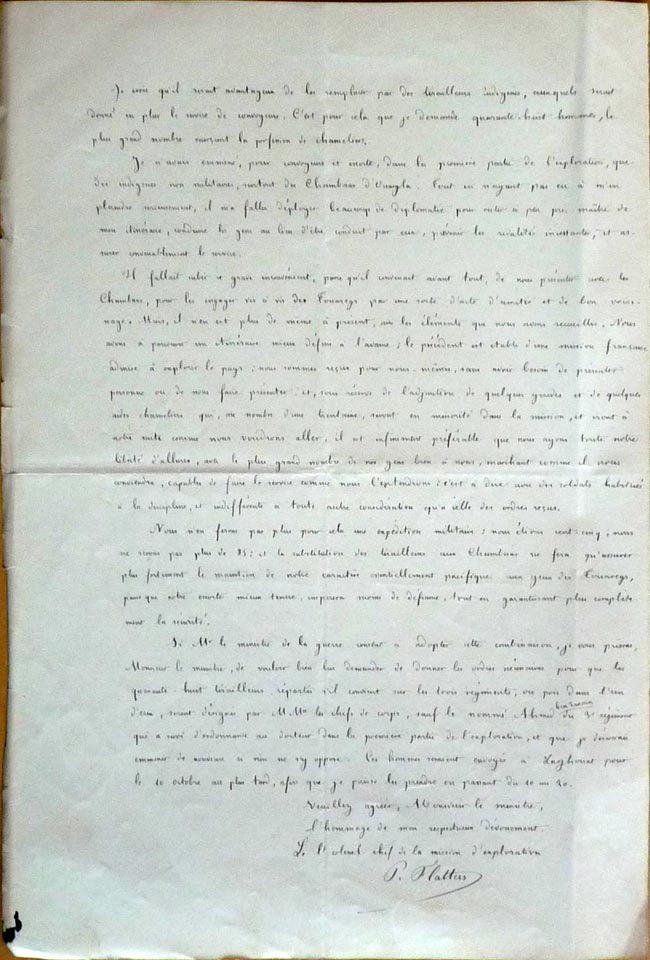 Je crois qu'il serait avantageux de les remplacer par des tirailleurs indigènes, auxquels serait
donné en plus le service de convoyeurs. C'est pour cela que je demande quarante-huit hommes, le
plus grand nombre exerçant la profession de chameliers.
Je n'avais emmené, pour convoyeurs et escorte, dans la première partie de l'exploration, que
des indigènes non militaires, surtout des Chambaas d'Ouargla. Tout en n'ayant pas eu à m'en
plaindre, il m'a fallu déployer beaucoup de diplomatie pour rester à peu près maître de
mon itinéraire, conduire les gens au lieu d'être conduit par eux, prévenir les rivalités incessantes, et as-
surer convenablement le service.
Il fallait subir ce grave inconvénient, parce qu'il convenait avant tout, de nous présenter avec les
Chambaas, pour les engager vis à vis des Touaregs par une sorte d'acte d'amitié et de bon voisi-
nage. Mais, il n'en est plus de même à présent, avec les éléments que nous avons recueillis. Nous
avons à parcourir un itinéraire mieux défini à l'avance ; le précédent est établi d'une mission française
admise à explorer le pays ; nous sommes reçus pour nous-mêmes, sans avoir besoin de présenter
personne ou de nous faire présenter : et, sous réserve de l'adjonction de quelques guides et de quelques
aides chameliers qui, au nombre d'une trentaine, seront en minorité dans la mission, et iront à
notre suite comme nous voudrons aller, il est infiniment préférable que nous ayons toute notre
liberté d'allures, avec le plus grand nombre de nos gens bien à nous, marchant comme il nous
conviendra, capables de faire le service comme nous l'entendrons : c'est à dire avec des soldats habitués
à la discipline, et indifférents à toute autre considération qu'à celle des ordres reçus.
Nous n'en ferons pas plus pour cela une expédition militaire : nous étions cent-cinq, nous
ne serons pas plus de 85 ; et la substitution des tirailleurs aux Chambaas ne fera qu'assurer
plus fortement le maintien de notre caractère essentiellement pacifique aux yeux des Touaregs,
parce que notre escorte mieux tenue, inspirera moins de défiance, tout en garantissant plus complète-
ment la sécurité.
Si Mr le ministre de la guerre consent à adopter cette combinaison, je vous prierai,
Monsieur le ministre, de vouloir bien lui demander de donner les ordres nécessaires pour que les
quarante-huit tirailleurs répartis s'il convient sur les trois régiments, ou pris dans l'un
d'eux, soient désignés par MMrs les chefs de corps, sauf le nommé Ahmed du 3e régiment
qui a servi d'ordonnance au docteur dans la première partie de l'exploration, et que je désirerais
emmener de nouveau si rien ne s'y oppose. Ces hommes seraient envoyés à Laghouat pour
le 10 octobre au plus tard, afin que je puisse les prendre en passant du 10 au 20.
Veuillez agréer, Monsieur le ministre,
l'hommage de mon respectueux dévouement.
Le lt colonel chef de la mission d'exploration
P. Flatters